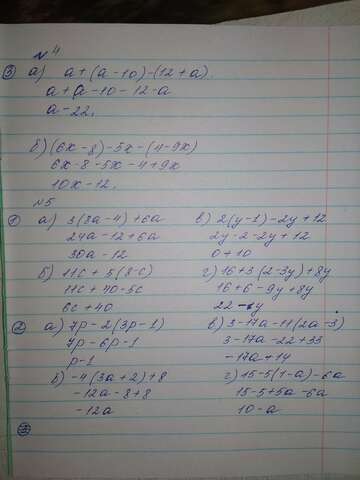 №4
③ а) a+(a-10)-(12+a).
a+a-10-12-a
a-22.
б) (6x-8)-5x-(4-9x)
6x-8-5x-4+9x
10x-12.
№5
① а) 3(8a-4)+6a
24a-12+6a
30a-12
б) 11c+5(8-c)
11c+40-5c
6c+40
в) 2(y-1)-2y+12
2y-2-2y+12
0+10
г) 16+3(2-3y)+8y
16+6-9y+8y
22-y
② а) 7p-2(3p-1)
7p-6p-1
p-1
б) -4(3a+2)+8
-12a-8+8
-12a
в) 3-17a-11(2a-3)
3-17a-22+33
-17a+14
г) 15-5(1-a)-6a
15-5+5a-6a
10-a
③